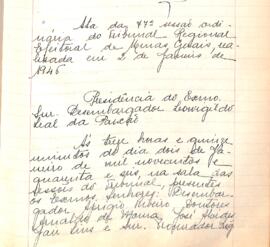 Ata da 47ª sessão ordi-
nária do Tribunal Regional
Eleitoral de Minas Gerais, rea-
lisada em 2 de Janeiro de
1946
Presidencia do Exmo.
Snr. Desembargador Leovegildo
Leal da Paixão
Às treze horas e quinze
minutos do dia dois de Ja-
neiro de mil novecentos e
quarenta e seis, na sala das
sessões do Tribunal, presentes
os Exmos. Senhores: Desemba-
gador Ribeiro, Doutores
José
e Snr. Procurador Reg